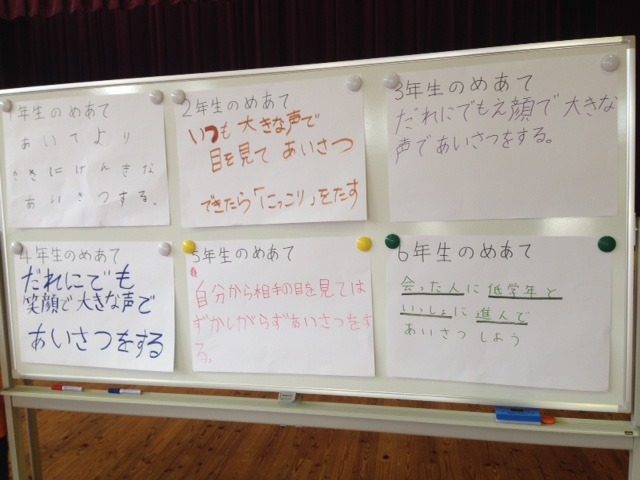 1年生のめあて
あいてより
さきにげんきな
あいさつする。
2年生のめあて
いつも大きな声で
目を見て あいさつ
できたら「にっこり」をたす
3年生のめあて
だれにでもえ顔で大きな
声であいさつをする。
4年生のめあて
だれにでも
笑顔で大きな声で
あいさつをする
5年生のめあて
自分から相手の目を見ては
ずかしがらずあいさつをす
る。
6年生のめあて
会った人に低学年と
いっしょに進んで
あいさつ しよう